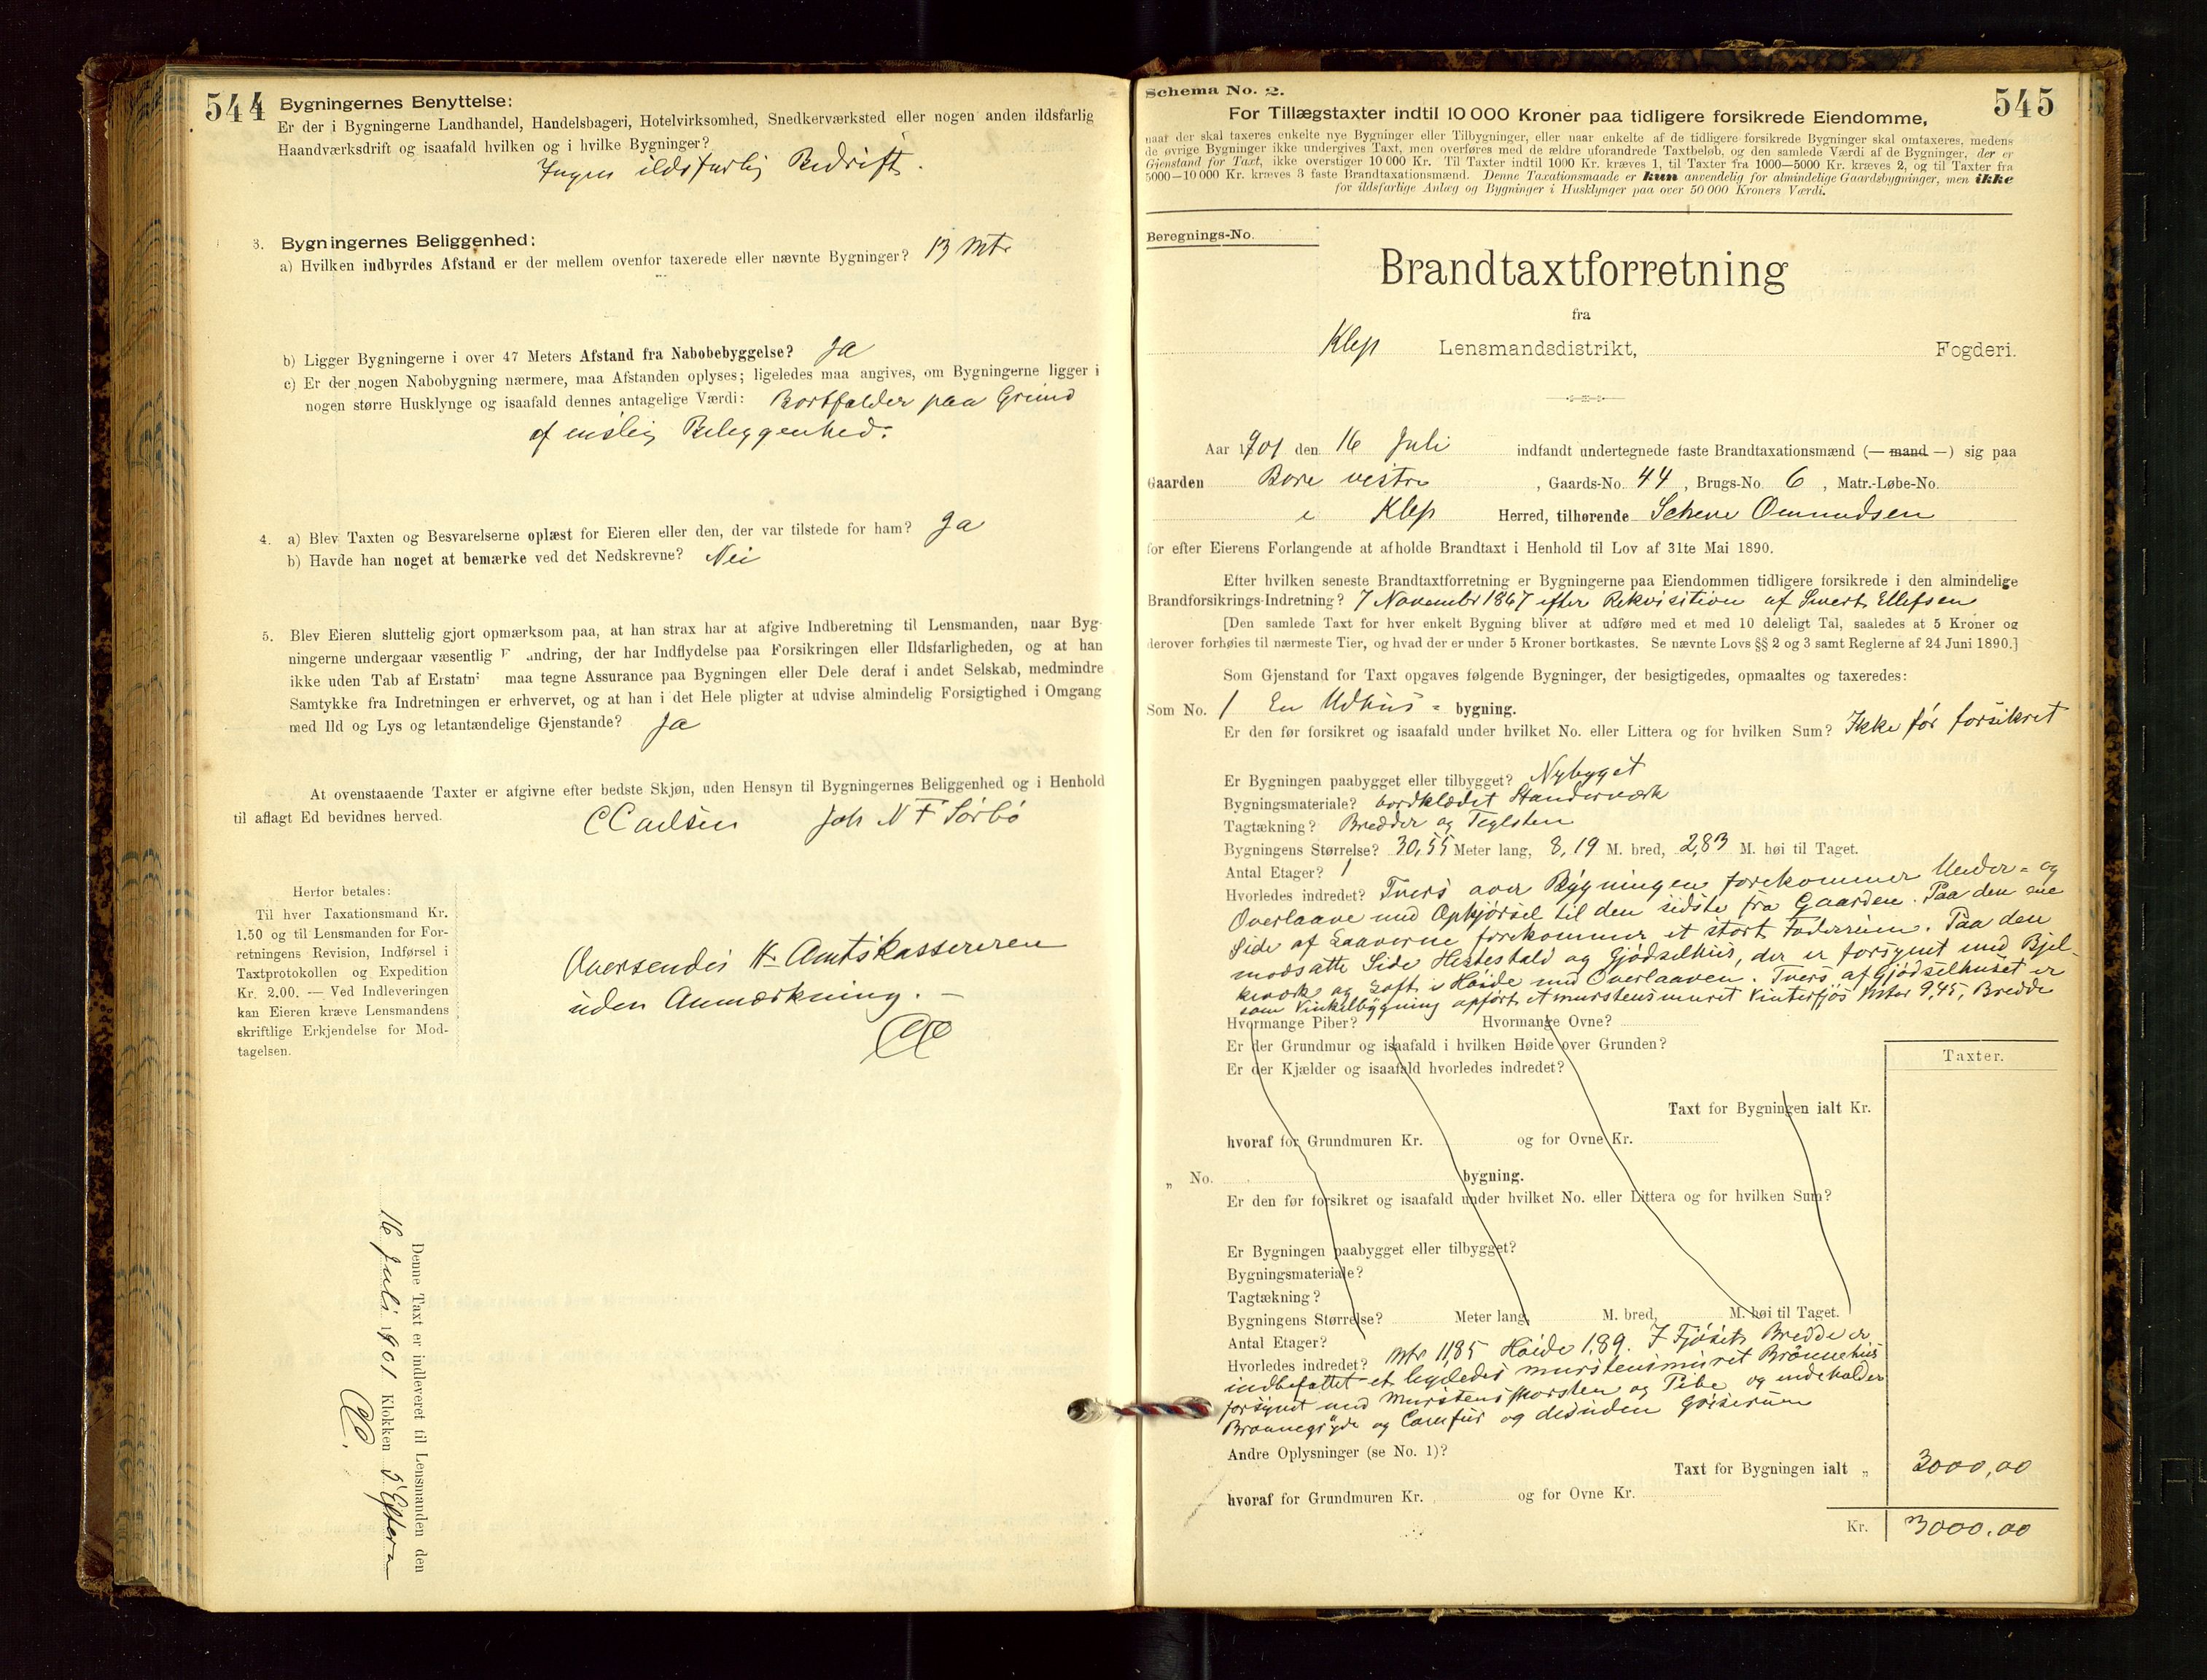 544
Bygningernes Benyttelse:
Er der i Bygningerne Landhandel, Handelsbageri, Hotelvirksomhed, Snedkerværksted eller nogen anden ildsfarlig
Haandværksdrift og isaafald hvilken og i hvilke Bygninger?
Ingen ildsfarlig Bedrift.
3. Bygningernes Beliggenhed:
a) Hvilken indbyrdes Afstand er der mellem ovenfor taxerede eller nævnte Bygninger? 13 Mtr
b) Ligger Bygningerne i over 47 Meters Afstand fra Nabobebyggelse? Ja
c) Er der nogen Nabobygning nærmere, maa Afstanden oplyses; ligeledes maa angives, om Bygningerne ligger i
nogen større Husklynge og isaafald dennes antagelige Værdi: Bortfalder paa Grund
af enslig Beliggenhed.
4. a) Blev Taxten og Besvarelserne oplæst for Eieren eller den, der var tilstede for ham? Ja
b) Havde han noget at bemærke ved det Nedskrevne? Nei
5. Blev Eieren sluttelig gjort opmærksom paa, at han strax har at afgive Indberetning til Lensmanden, naar Byg-
ningerne undergaar væsentlig F andring, der har Indflydelse paa Forsikringen eller Ildsfarligheden, og at han
ikke uden Tab af Erstatn maa tegne Assurance paa Bygningen eller Dele deraf i andet Selskab, medmindre
Samtykke fra Indretningen er erhvervet, og at han i det Hele pligter at udvise almindelig Forsigtighed i Omgang
med Ild og Lys og letantændelige Gjenstande? Ja
At ovenstaaende Taxter er afgivne efter bedste Skjøn, uden Hensyn til Bygningernes Beliggenhed og i Henhold
til aflagt Ed bevidnes herved.
C Carlsen Joh N F Sørbö
Herfor betales:
Til hver Taxationsmand Kr.
1.50 og til Lensmanden for For-
retningens Revision, Indførsel i
Taxtprotokollen og Expedition
Kr. 2.00. — Ved Indleveringen
kan Eieren kræve Lensmandens
skriftlige Erkjendelse for Mod-
tagelsen.
Oversendes Hr. Amtskassereren
uden Anmærkning. —
Denne Taxt er indleveret til Lensmanden den
16 Juli 1901 Klokken 5 Efterm
545
Schema No. 2.
For Tillægstaxter indtil 10 000 Kroner paa tidligere forsikrede Eiendomme,
naar der skal taxeres enkelte nye Bygninger eller Tilbygninger, eller naar enkelte af de tidligere forsikrede Bygninger skal omtaxeres, medens
de øvrige Bygninger ikke undergives Taxt, men overføres med de ældre uforandrede Taxtbeløb, og den samlede Værdi af de Bygninger, der er
Gjenstand for Taxt, ikke overstiger 10 000 Kr. Til Taxter indtil 1000 Kr. kræves 1, til Taxter fra 1000—5000 Kr. kræves 2, og til Taxter fra
5000—10 000 Kr. kræves 3 faste Brandtaxationsmænd. Denne Taxationsmaade er kun anvendelig for almindelige Gaardsbygninger, men ikke
for ildsfarlige Anlæg og Bygninger i Husklynger paa over 50 000 Kroners Værdi.
Beregnings-No.
Brandtaxtforretning
fra
Klep Lensmandsdistrikt, Fogderi.
Aar 1901 den 16 Juli indfandt undertegnede faste Brandtaxationsmænd (— mand —) sig paa
Gaarden Bore vestre, Gaards-No. 44, Brugs-No. 6, Matr.-Løbe-No.
i Klep Herred, tilhørende Omundsen
for efter Eierens Forlangende at afholde Brandtaxt i Henhold til Lov af 31te Mai 1890.
Efter hvilken seneste Brandtaxtforretning er Bygningerne paa Eiendommen tidligere forsikrede i den almindelige
Brandforsikrings-Indretning? 7 November 1867 efter Rekvisition af Sivert Ellefsen
[Den samlede Taxt for hver enkelt Bygning bliver at udføre med et med 10 deleligt Tal, saaledes at 5 Kroner og
derover forhøies til nærmeste Tier, og hvad der er under 5 Kroner bortkastes. Se nævnte Lovs §§ 2 og 3 samt Reglerne af 24 Juni 1890.]
Som Gjenstand for Taxt opgaves følgende Bygninger, der besigtigedes, opmaaltes og taxeredes:
Som No. 1 En Udhus- bygning.
Er den før forsikret og isaafald under hvilket No. eller Littera og for hvilken Sum? Ikke før forsikret
Er Bygningen paabygget eller tilbygget? Nybyget
Bygningsmateriale? bordklædet Standerværk
Tagtækning? Bredder og Teglsten
Bygningens Størrelse? 30,55 Meter lang, 8,19 M. bred, 2,83 M. høi til Taget.
Antal Etager? 1
Hvorledes indredet? Tvers over Bygningen forekommer Under- og
Overlaave med Opkjørsel til den sidste fra Gaarden. Paa den ene
Side af Laaverne forekommer et stort Foderrum. Paa den
modsatte Side Hestestald og Gjødselhus, der er forsynet med Bjel-
keværk og Loft i Høide med Overlaaven. Tvers af Gjødselhuset er
som Vinkelbygning opført et murstensmuret Vinterfjøs Mtr 9,45, Bredde
Hvormange Piber? Hvormange Ovne?
Er der Grundmur og isaafald i hvilken Høide over Grunden?
Er der Kjælder og isaafald hvorledes indredet?
Taxter.
Taxt for Bygningen ialt Kr.
hvoraf for Grundmuren Kr. og for Ovne Kr.
„ No. bygning.
Er den før forsikret og isaafald under hvilket No. eller Littera og for hvilken Sum?
Er Bygningen paabygget eller tilbygget?
Bygningsmateriale?
Tagtækning?
Bygningens Størrelse? Meter lang, M. bred, M. høi til Taget.
Antal Etager?
Hvorledes indredet? Mtr 11,85 Høide 1,89. I Fjøsets Bredde er
indbefattet et ligeledes murstensmuret Brønnehus
forsynet med Murstensskorsten og Pibe og indeholder
Brønnegryde og Comfur og desuden Griserum
Andre Oplysninger (se No. 1)?
Taxt for Bygningen ialt „ 3000,00
hvoraf for Grundmuren Kr. og for Ovne Kr.
Kr. 3000.00